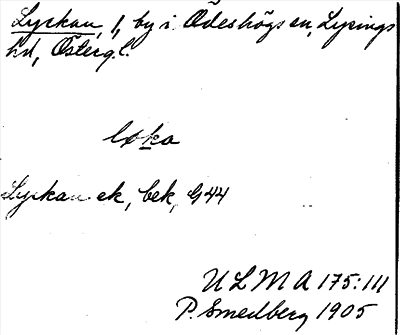 Lyckan, f, by i Ödeshögs sn, Lysings
hd, Österg.l.
løka
Lyckan ek, bek, G44
ULMA 175:111
P. Smedberg 1905